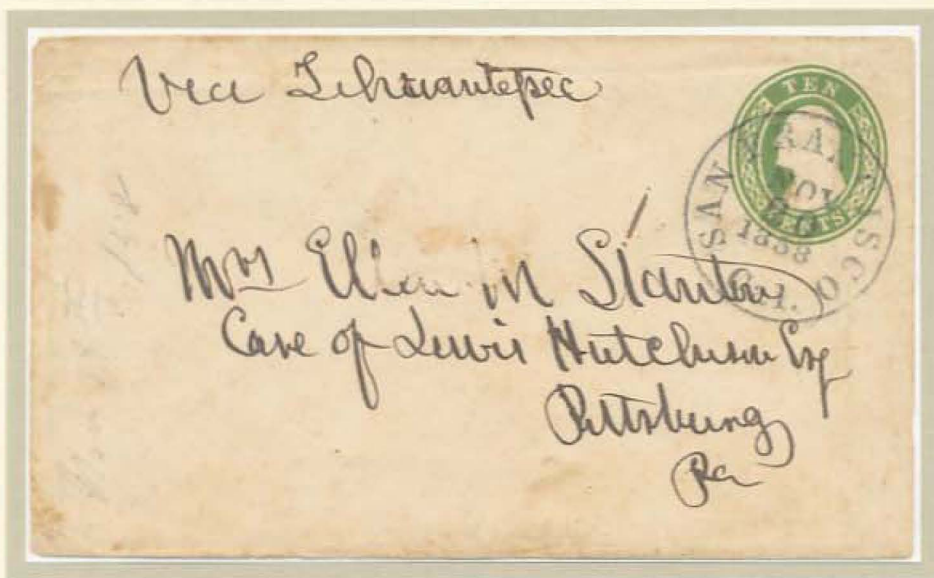 Via Tehuantepec
TEN
CENTS
SAN FRANCISCO
NOV
20
1858
CAL.
Mrs Ellen M Stanton
Care of Lewis Hutchison Esq
Pittsburg
Pa